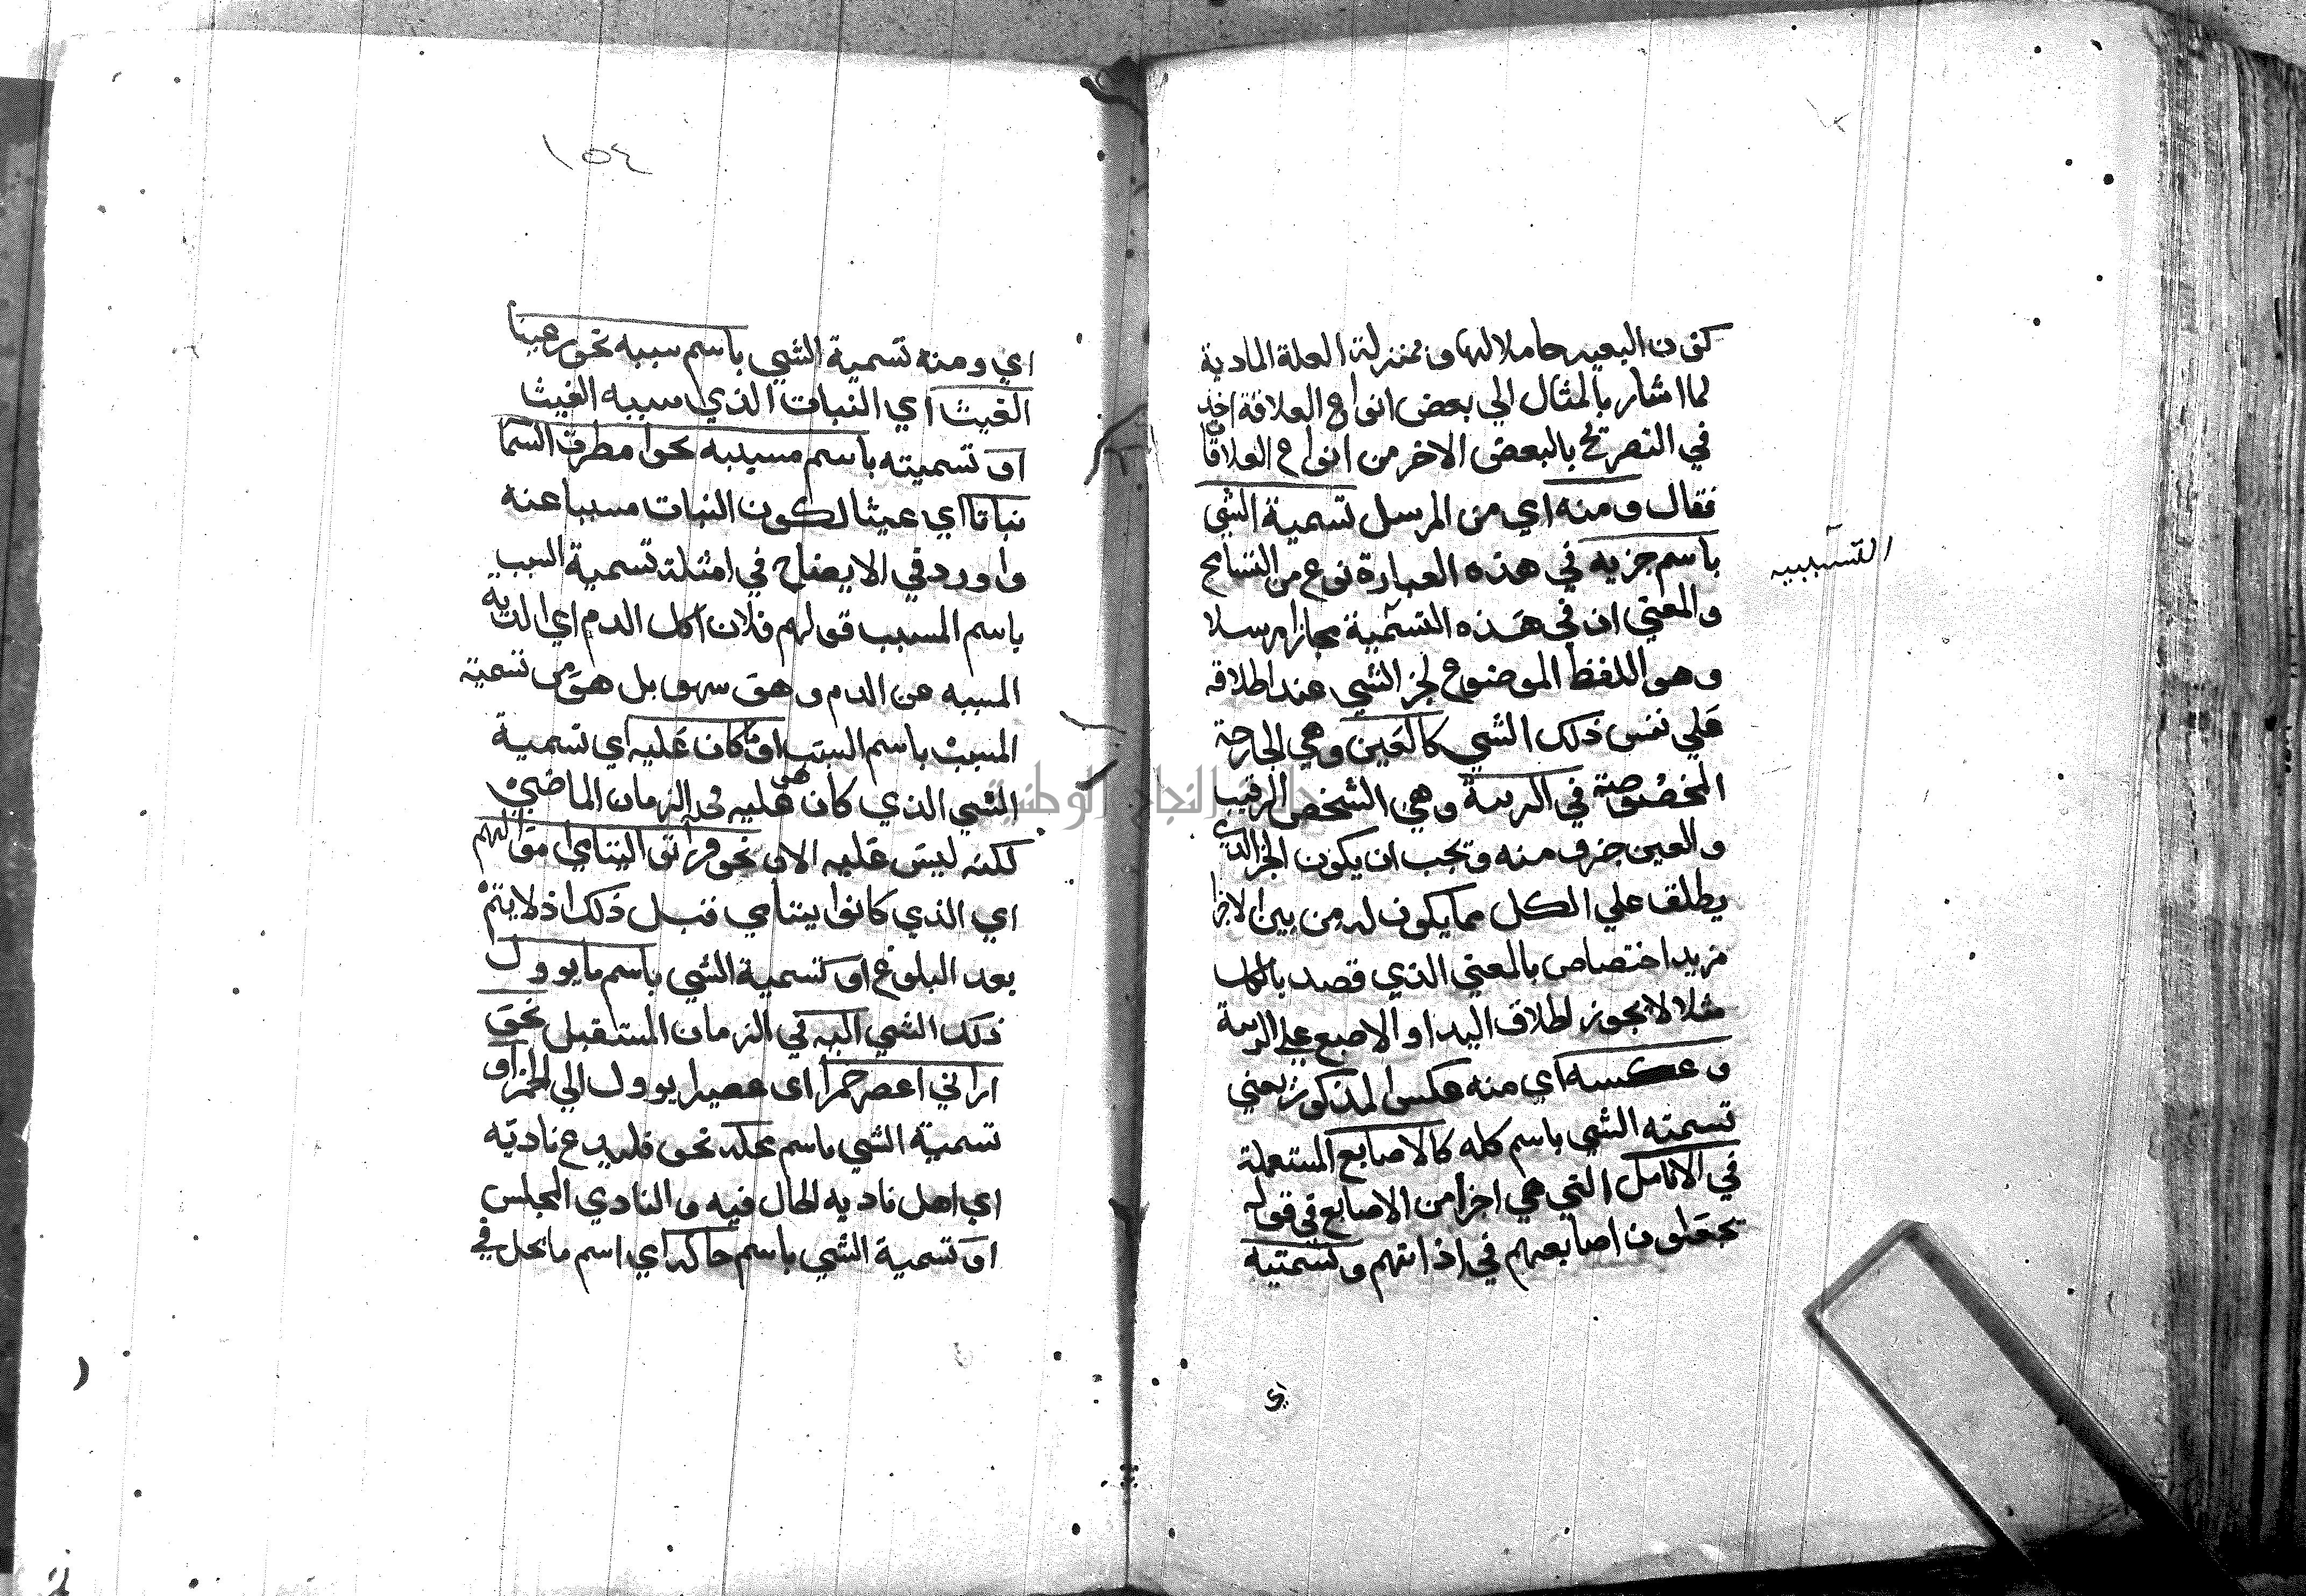 كون البعير حاملا لها و بمنزلة العلة المادية
لما اشار بالمثال الي بعض انواع العلاقة اخذ
في التصريح بالبعض الاخر من انواع العلاقات
فقال و منه اي من المرسل تسمية الشي
باسم جزيه في هذه العبارة نوع من التسامح
و المعني ان في هذه التسمية مجازا مرسلا
و هو اللفظ الموضوع لجز الشي عند اطلاقه
علي نفس ذلك الشي كالعين و هي الجارحة
المخصوصة في الربية و هي الشخص الرقيب
و العين جزو منه و يجب ان يكون الجز الذي
يطلق علي الكل مما يكون له من بين الاجزا
مزيد اختصاص بالمعني الذي قصد بالكل
مثلا لا يجوز اطلاق اليد او الاصبع علي الربية
و عكسه اي منه عكس المذكور يعني
تسمته الشي باسم كله كالاصابع المستعملة
في الانامل التي هي اجزا من الاصابع في قوله
يجعلون اصابعهم في اذانهم و تسمتيه
اي
١٥٤
اي و منه تسمية الشي باسم سببه نحو رعينا
الغيث اي النبات الذي سببه الغيث
او تسميته باسم مسببه نحو امطرت السما
نباتا اي غيثا لكون النبات مسببا عنه
و اورد في الايضاح في امثلة تسمية السبب
باسم المسبب قولهم فلان اكل الدم اي الدية
المسببه عن الدم و هو سهو بل هو من تسمية
المسبب باسم السبب او ما كان عليه اي تسمية
الشي الذي كان هو عليه في الزمان الماضي
لكنه ليس عليه الان نحو و اتوا اليتامي اموالهم
اي الذي كانوا يتامي قبل ذلك اذ لا يتم
بعد البلوغ او تسمية الشي باسم ما يوول
ذلك الشي اليه في الزمان المستقبل نحو
اراني اعصر خمرا اى عصيرا يوول الي الخمر او
تسمية الشي باسم محله نحو فليدع ناديه
اي اهل ناديه الحال فيه و النادي المجلس
او تسمية الشي باسم حاله اي اسم ما يحل في